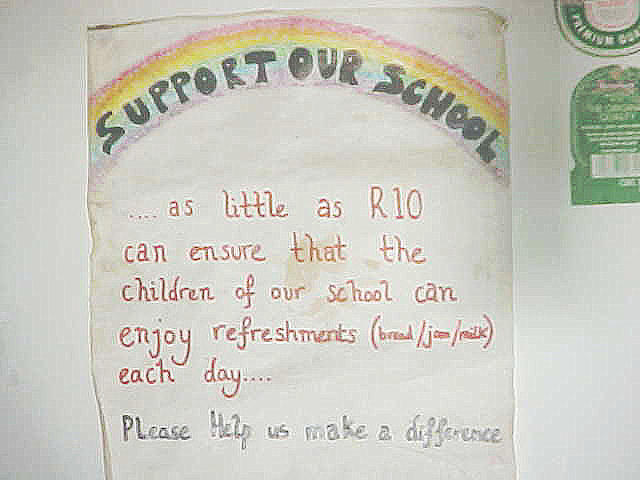 SUPPORT OUR SCHOOL
.... as little as R10
can ensure that the
children of our school can
enjoy refreshments (bread/jam/milk)
each day....
PLease Help us make a difference
PREMIUM